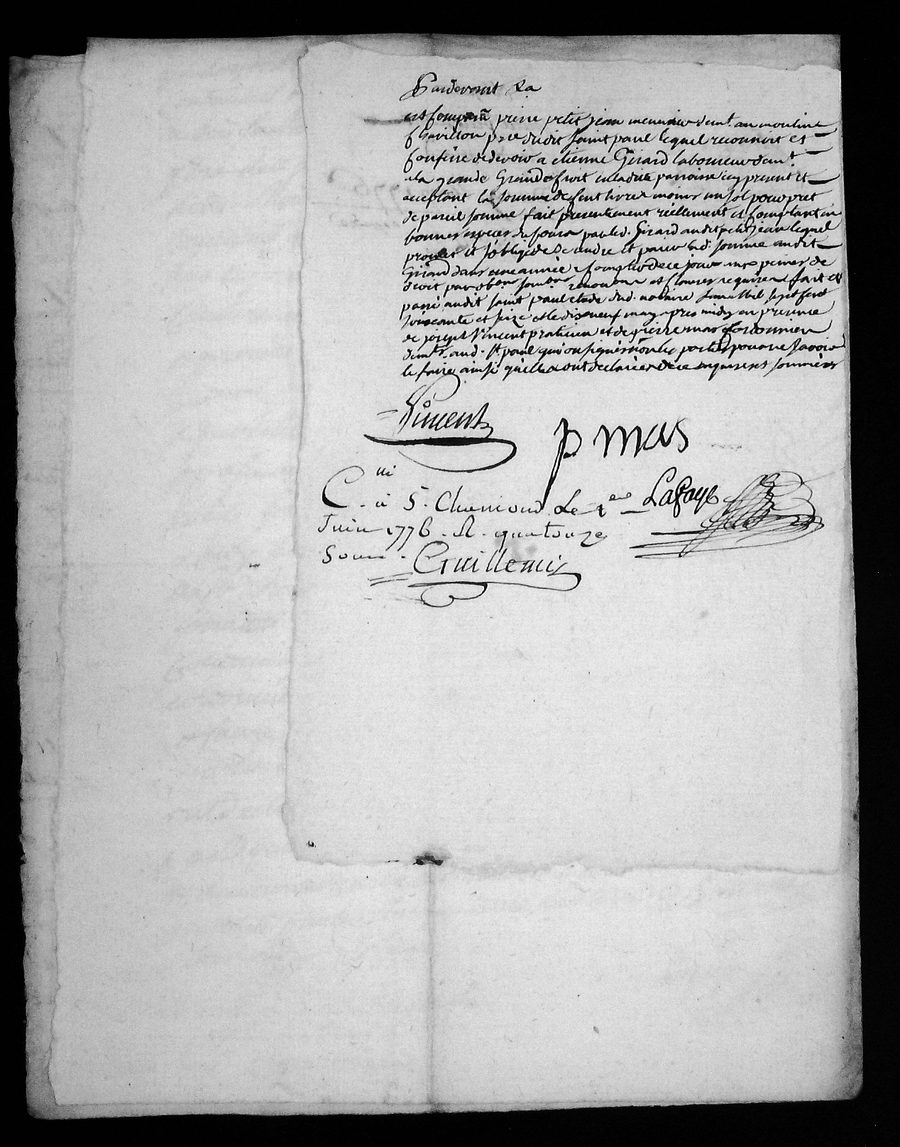 Pardevant La
est comparu pierre petit jean meunier demt. au moulin
psse dudit saint paul lequel reconnoit et
confesse de devoir a etienne Girard laboureur demt.
a la grande Girardiere en ladite parroisse cy present et
acceptant la somme de cent livres moins un sol pour pret
de pareil somme fait presentement reellement et comptant en
bonnes especes du jours par led. Girard audit petit jean lequel
promet et s'oblige de rendre et payer lad. somme audit
Girard dans une année a compter de ce jour aux peines de
droit par obon soumons renonons et clauses requises fait et
passé audit saint paul etude dud. notaire L'an mil sept cent
soixante et seize et le dix neuf may apres midy en presence
de joseph Vincent praticien et de pierre mas cordonnier
demts. aud. St. paul qui ont signés non les parties pour ne savoir
le faire ainsi qu'elles ont declarées de ce enquises et sommées
Vincent
p mas
Lafaye
C. lle a S. Chamond Le 1er
Juin 1776. R. quatorze
sous. Guillemin